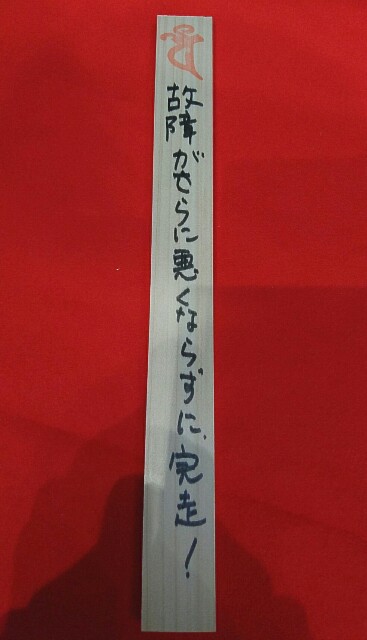 故障がさらに悪くならずに、完走！